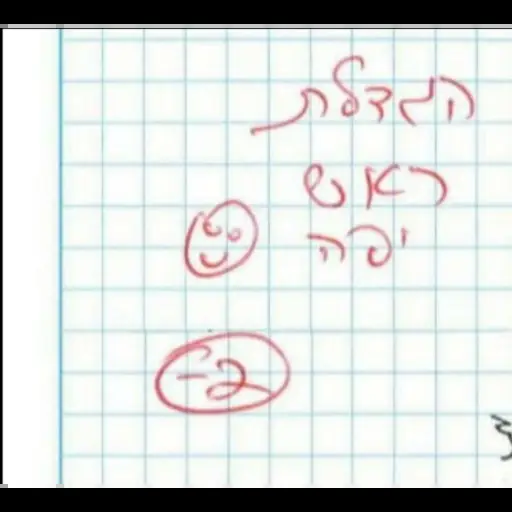 הגדלת
ראש
יפה
-2